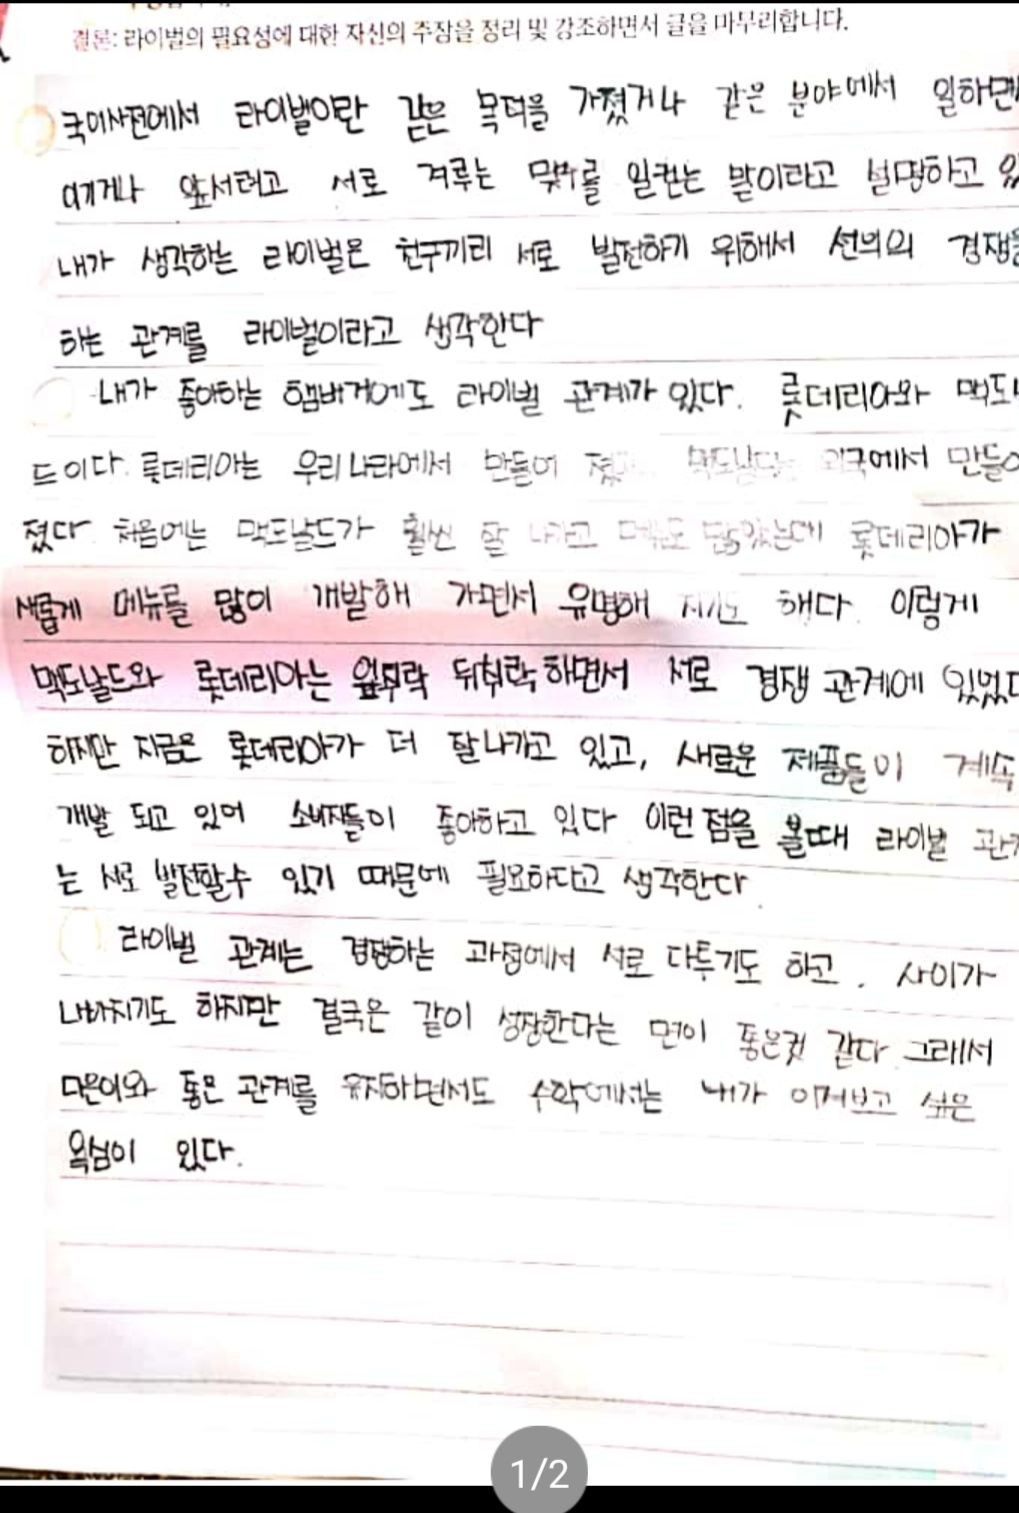 결론: 라이벌의 필요성에 대한 자신의 주장을 정리 및 강조하면서 글을 마무리합니다.
국어사전에서 라이벌이란 같은 목적을 가졌거나 같은 분야에서 일하면
이기거나 앞서려고 서로 겨루는 맞수를 일컫는 말이라고 설명하고 있
내가 생각하는 라이벌은 친구끼리 서로 발전하기 위해서 선의의 경쟁을
하는 관계를 라이벌이라고 생각한다
내가 좋아하는 햄버거에도 라이벌 관계가 있다. 롯데리아와 맥도
드이다. 롯데리아는 우리나라에서 만들어 졌 맥도날드는 외국에서 만들어
졌다 처음에는 맥도날드가 훨씬 잘 나가고 메뉴도 많았는데 롯데리아가
새롭게 메뉴를 많이 개발해 가면서 유명해 지기도 해다 이렇게
맥도날드와 롯데리아는 엎치락 뒤취락 하면서 서로 경쟁 관계에 있었다
하지만 지금은 롯데리아가 더 잘나가고 있고, 새로운 제품들이 계속
개발 되고 있어 소비자들이 좋아하고 있다 이런 점을 볼때 라이벌 관
는 서로 발전할수 있기 때문에 필요하다고 생각한다
라이벌 관계는 경쟁하는 과정에서 서로 다투기도 하고, 사이가
나빠지기도 하지만 결국은 같이 성장한다는 면이 좋은것 같다 그래서
다은이와 좋은 관계를 유지하면서도 수학에서는 내가 이겨보고 싶은
욕심이 있다.
1/2